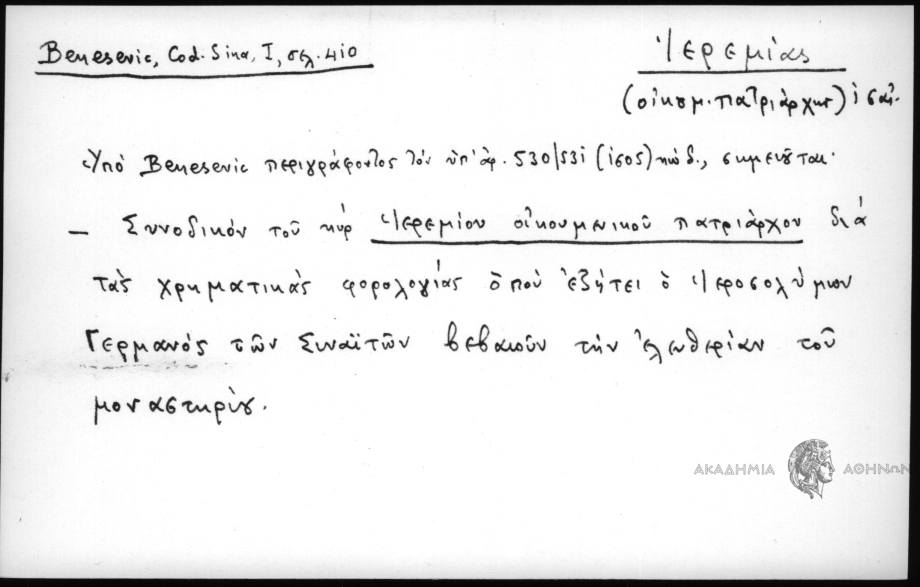 Benesevic, Cod. Sina, I, σελ. 410
Ἱερεμίας
(οἰκουμ. πατριάρχης) ις αἰ.
Ὑπό Benesevic περιγράφοντος τόν ὑπ' ἀρ. 530/531 (ισος) κώδ., σημειοῦται·
— Συνοδικόν τοῦ κύρ Ἱερεμίου οἰκουμενικοῦ πατριάρχου διά
τάς χρηματικάς φορολογίας ὁποῦ ἐζήτει ὁ Ἱεροσολύμων
Γερμανός τῶν Σιναϊτῶν βεβαιοῦν τήν ἐλευθερίαν τοῦ
μοναστηρίου.
ΑΚΑΔΗΜΙΑ ΑΘΗΝΩΝ